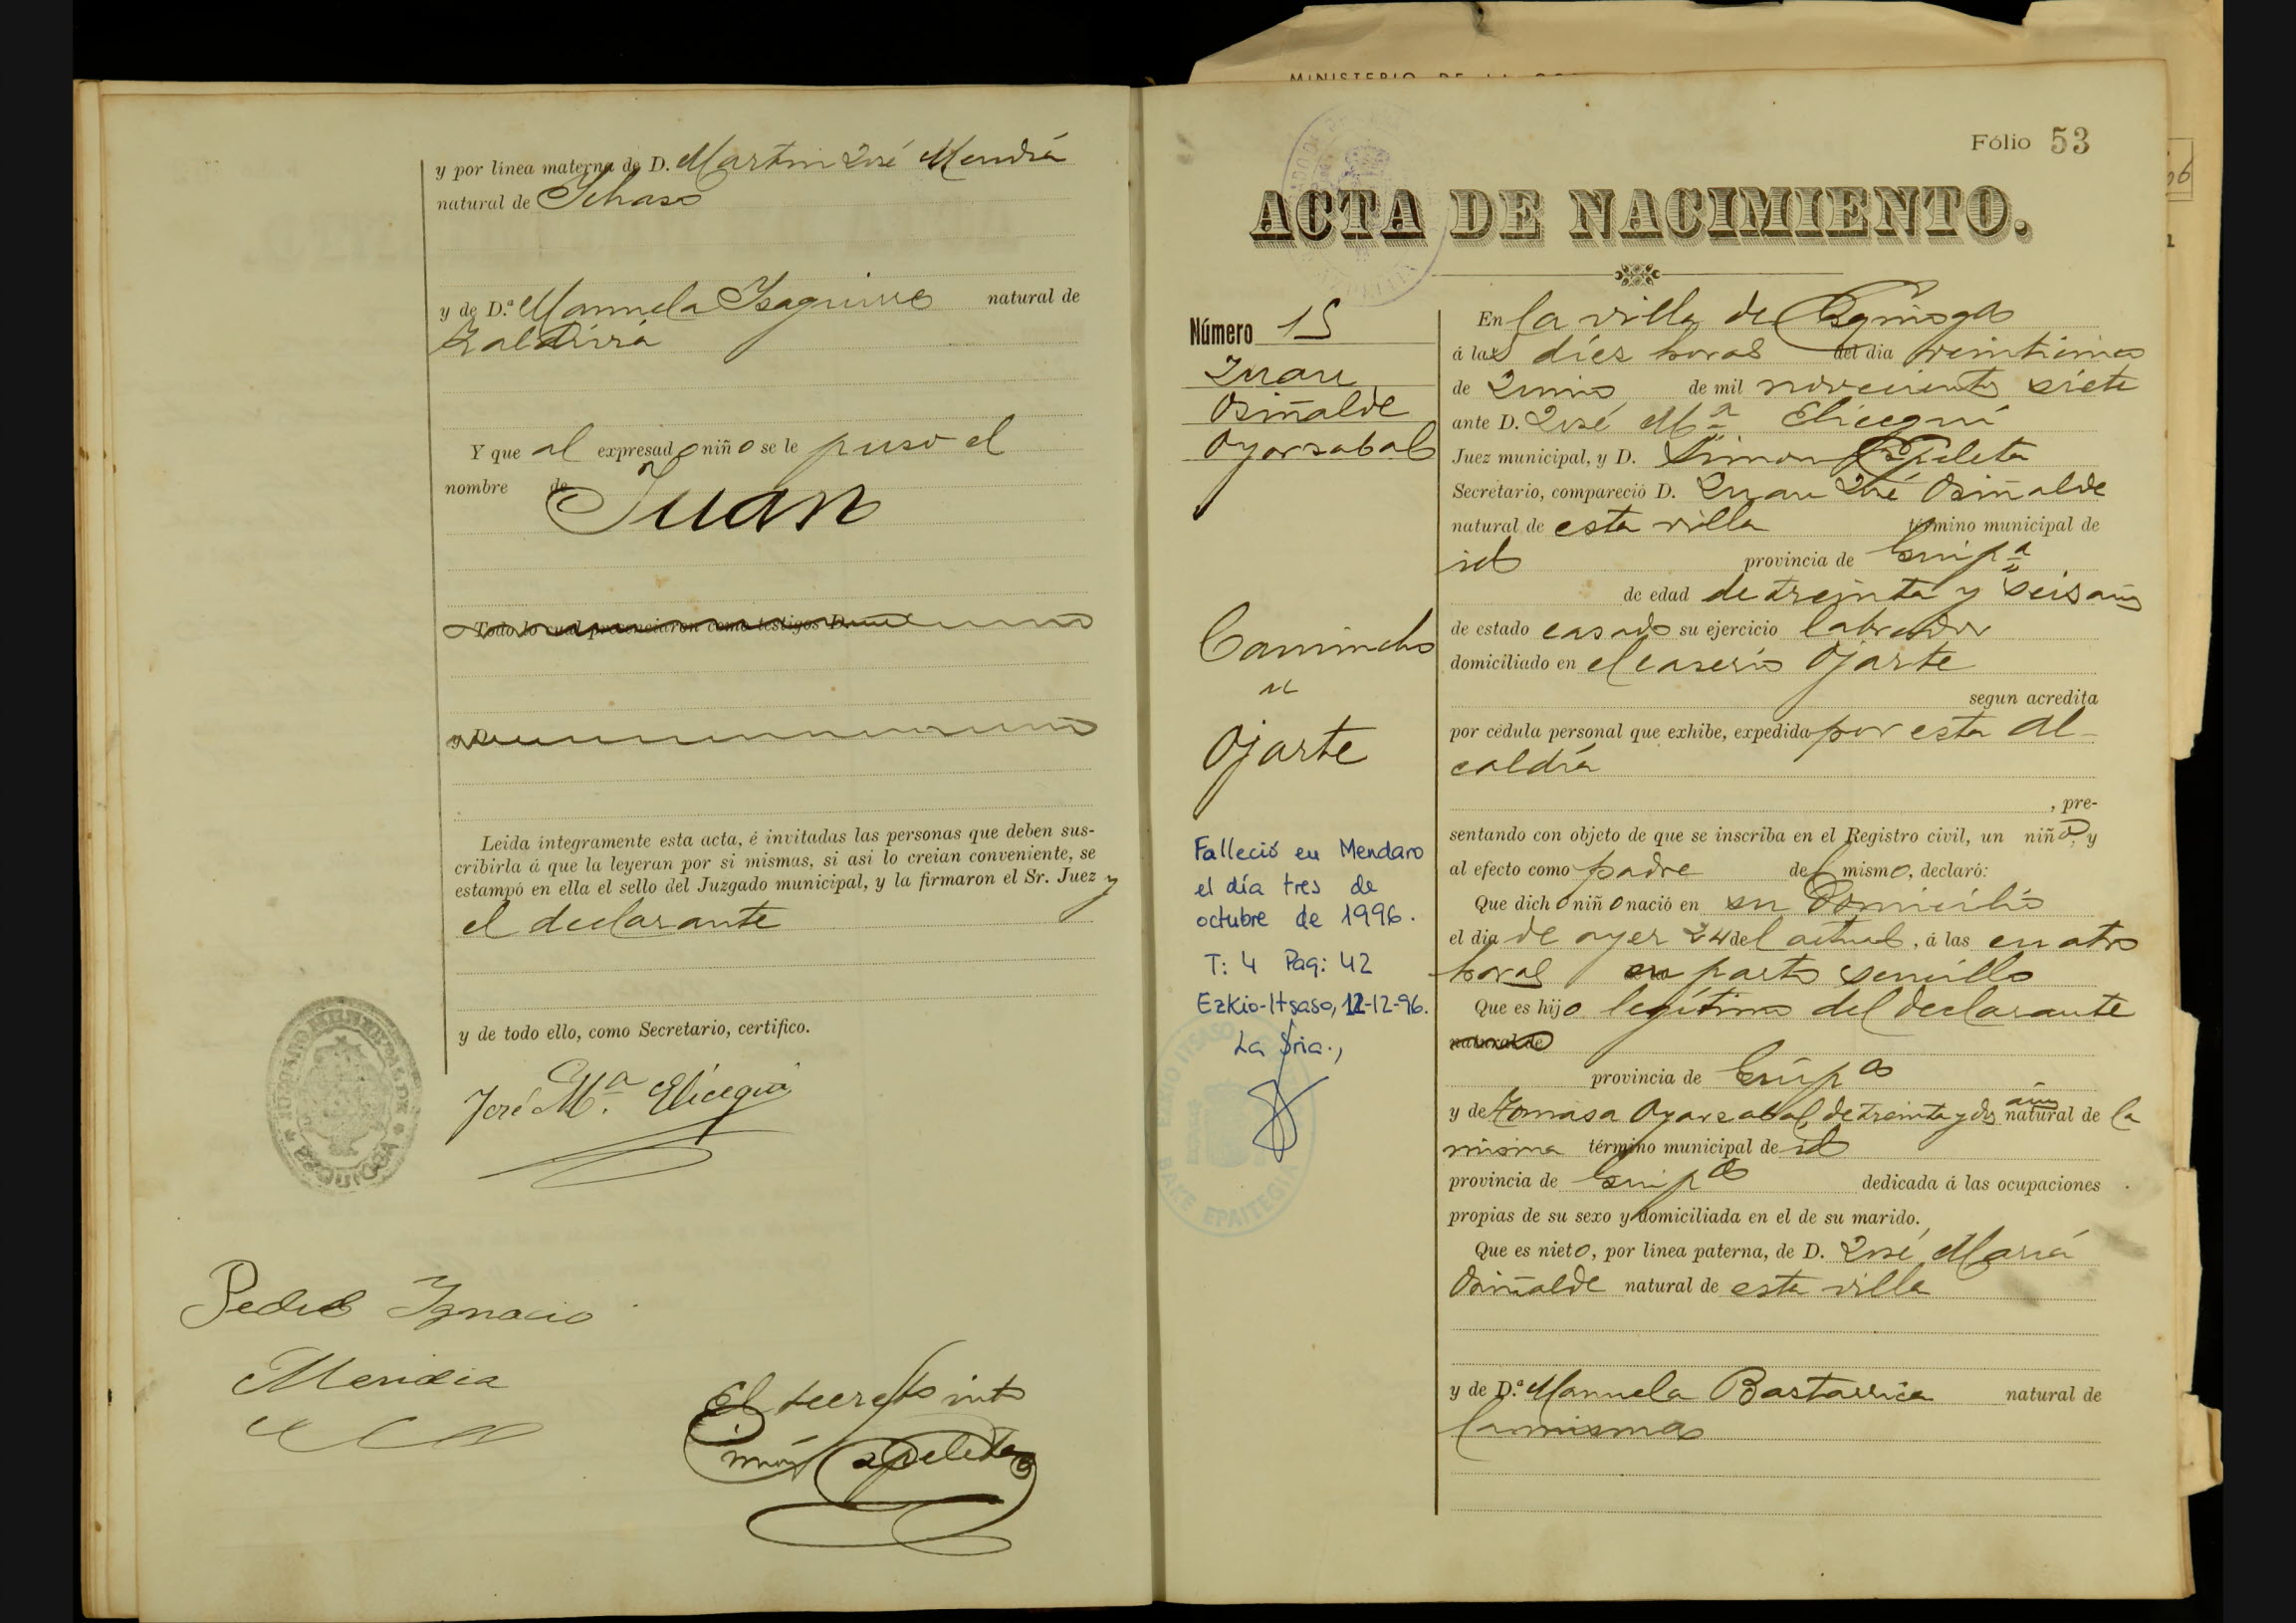 y por línea materna de D. Martin José Mendia
natural de Ichaso
y de D.ª Manuela Isaguirre natural de
Zaldivia
Y que al expresado niño se le puso el
nombre de
Juan
Todo lo cual presenciaron como testigos D.
y D.
Leida íntegramente esta acta, é invitadas las personas que deben sus-
cribirla á que la leyeran por si mismas, si asi lo creian conveniente, se
estampó en ella el sello del Juzgado municipal, y la firmaron el Sr. Juez y
el declarante
y de todo ello, como Secretario, certifico.
José M.ª Elicegui
Pedro Ignacio
Mendia
El secreto
Simón Ezpeleta
JUZGADO MUNICIPAL DE
EZQUIOGA
MINISTERIO DE LA
Fólio 53
ACTA DE NACIMIENTO.
Número 15
Juan
Osiñalde
Oyarzabal
Ojarte
Falleció en Mendaro
el día tres de
octubre de 1996.
T: 4 Pag: 42
Ezkio-Itsaso, 12-12-96.
La Sria.,
EZKIO ITSASO
BAKE EPAITEGIA
En la villa de Ezquioga
á las diez horas del dia veinticinco
de Junio de mil novecientos siete
ante D. José M.ª Elicegui
Juez municipal, y D. Simon Ezpeleta
Secretario, compareció D. Juan José Osiñalde
natural de esta villa término municipal de
id provincia de Guip.ª
de edad de treinta y seis años
de estado casado su ejercicio labrador
domiciliado en el caserio Ojarte
segun acredita
por cédula personal que exhibe, expedida por esta Al-
caldía
, pre-
sentando con objeto de que se inscriba en el Registro civil, un niño, y
al efecto como padre del mismo, declaró:
Que dicho niño nació en su domicilio
el dia de ayer 24 del actual, á las cuatro
horas en parto sencillo
Que es hijo legítimo del declarante
natural de
provincia de Guipª
y de Tomasa Oyarzabal, de treinta y dos años natural de la
misma término municipal de id
provincia de Guipª dedicada á las ocupaciones
propias de su sexo y domiciliada en el de su marido.
Que es nieto, por línea paterna, de D. José María
Osiñalde natural de esta villa
y de D.ª Manuela Bastarrica natural de
la misma